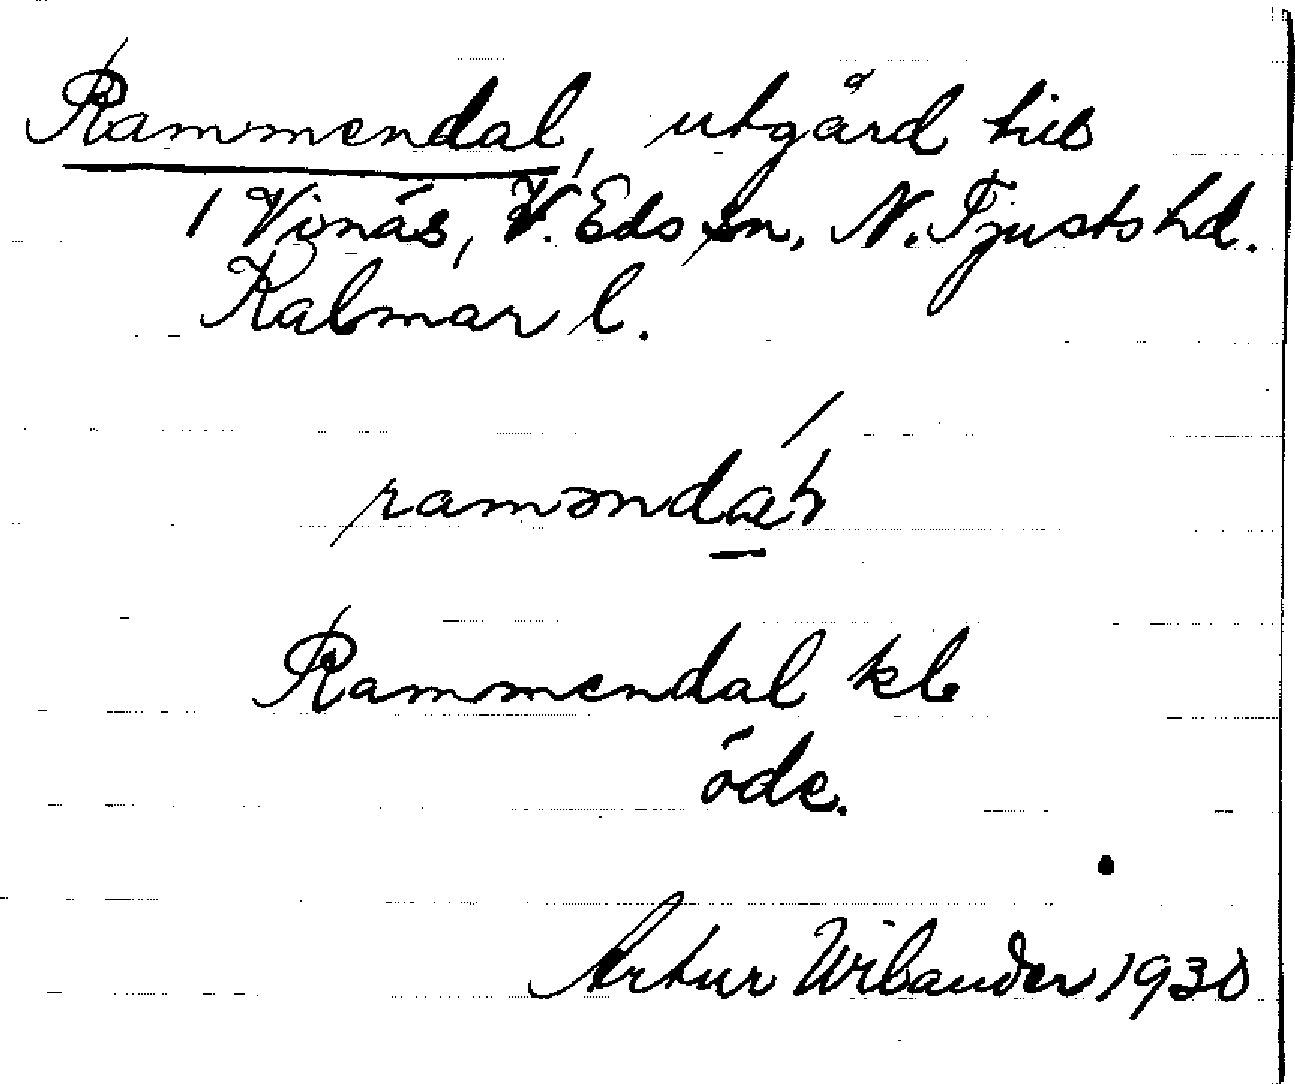 Rammendal, utgård till
1 Vinås, V. Eds sn, N. Tjusts hd.
Kalmar l.
Rammendal kb
öde.
Artur Wilander 1930